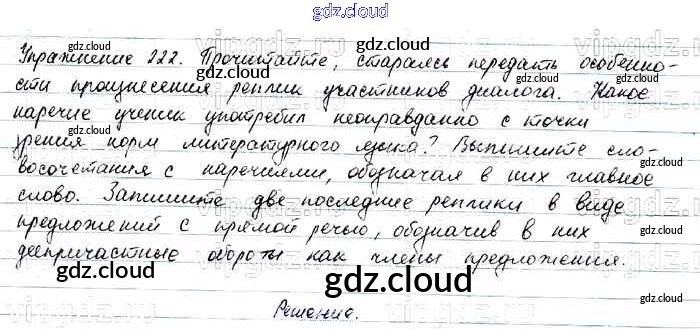 gdz.cloud
Упражнение 222. Прочитайте, стараясь передать особенно-
сти произнесения реплик участников диалога. Какое
наречие ученик употребил неоправданно с точки
зрения норм литературного языка? Выпишите сло-
восочетания с наречиями, обозначая в них главное
слово. Запишите две последние реплики в виде
предложений с прямой речью, обозначив в них
деепричастные обороты как члены предложения.
gdz.cloud
Решение.